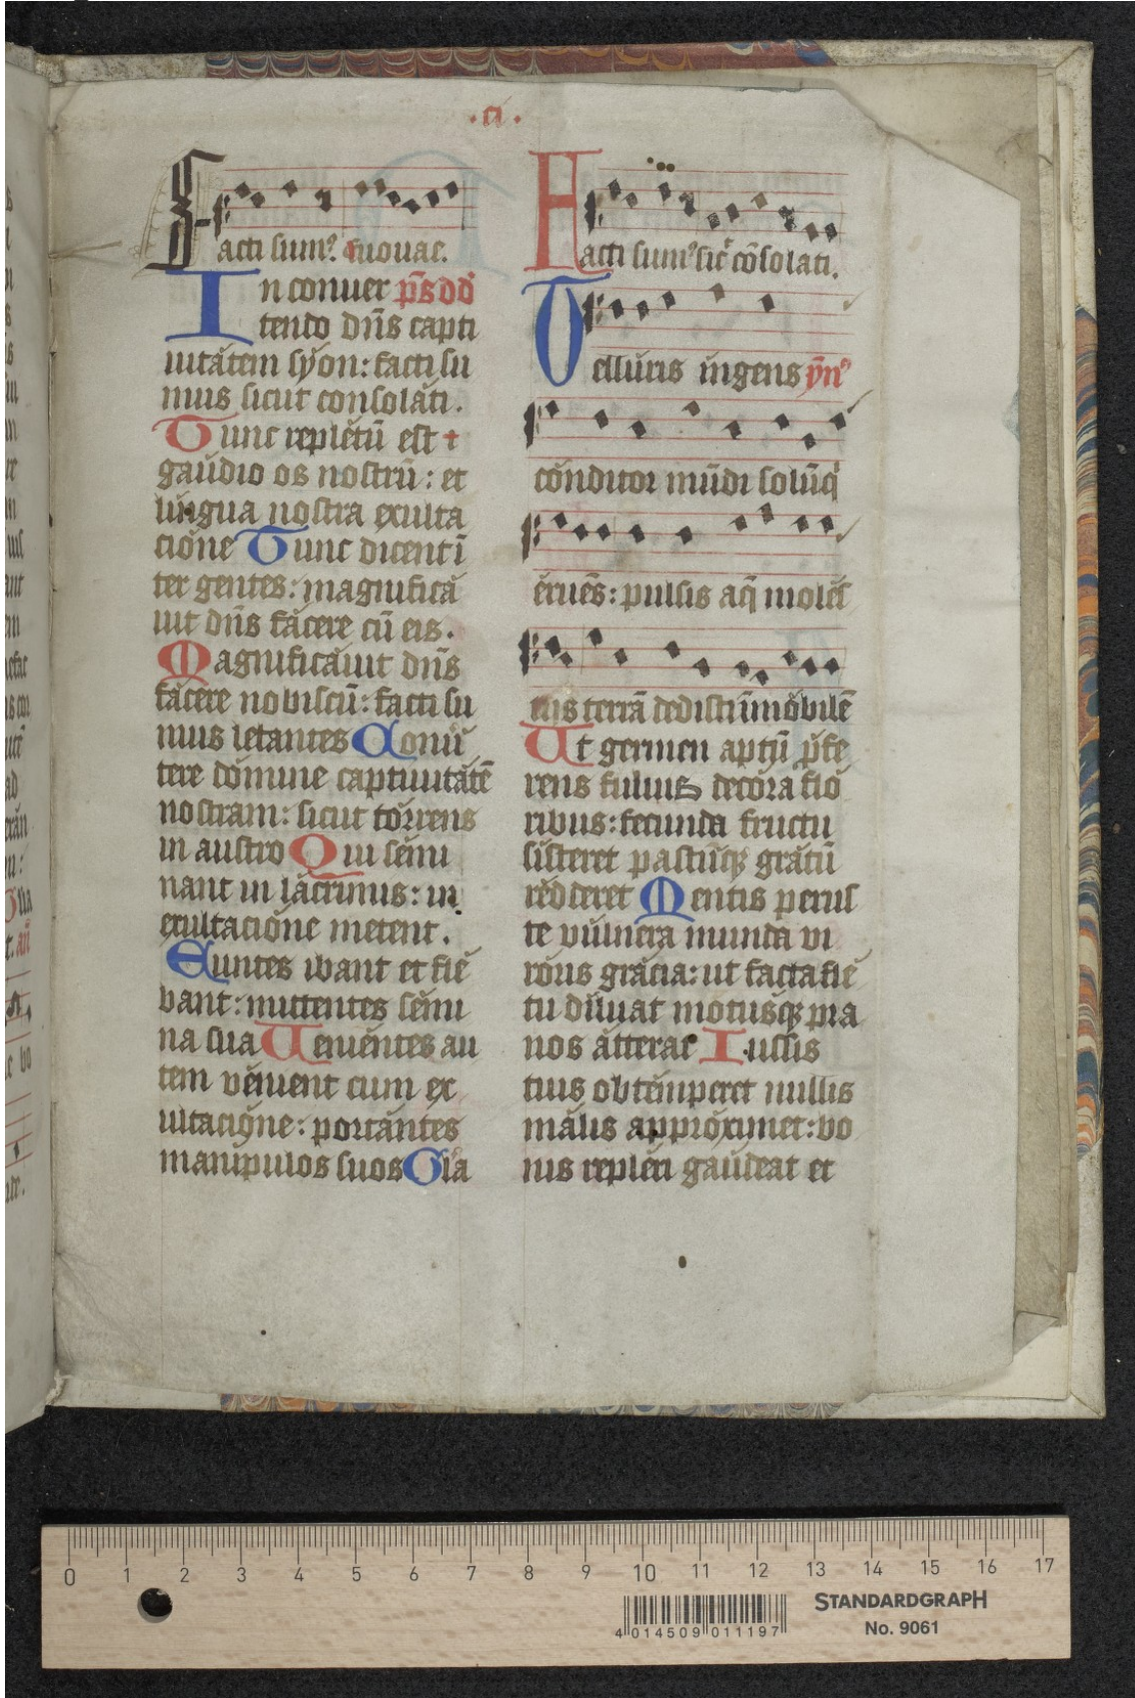 .ci.
Facti sumꝰ. euouae.
In conuer p̄s dd
tendo dn̄s capti
uitátem sÿon: facti su
mus sicut consoláti.
Tunc replétū est
gaúdio os nostrū: et
língua nostra exulta
cióne Tunc dicent ī
ter gentes: magnificá
uit dn̄s fácere cū eis.
Magnificáuit dn̄s
fácere nobiscū: facti su
mus letantes Conuér
tere dómine captiuitátē
nostram: sicut tórrens
in austro Qui sémi
nant in lácrimis: in
exultacióne metent.
Euntes ibant et flé
bant: mittentes sémi
na sua Ueniéntes au
tem vénient cum ex
ultacióne: portántes
manipulos suos Gl'a
Facti sumꝰ sic̄ cōsolati.
Telluris íngens ẏn̄ꝰ
cónditor mūdi solūq̄
éruēs: pulsis aq̄ moléš
tijs terrā dedisti īmóbilē
Ut germen aptū p̄fe
rens fuluis decóra fló
ribus: fecunda fructu
sísteret pastūqꝫ grátū
rédderet Mentis perus
te vúlnera munda vi
róris grácia: ut facta flé
tu díluat motúsqꝫ pra
nos átterat Iussis
tuis obtémperet nullis
mális appróximet: bo
nis repléri gaúdeat et
0 1 2 3 4 5 6 7 8 9 10 11 12 13 14 15 16 17
STANDARDGRAPH
No. 9061
4 014509 011197